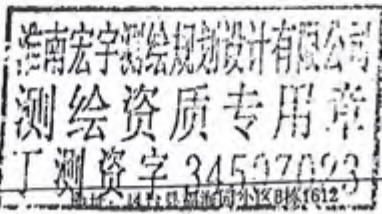 淮南宏宇测绘规划设计有限公司
测绘资质专用章
丁测资字 34507023
小区8栋1612